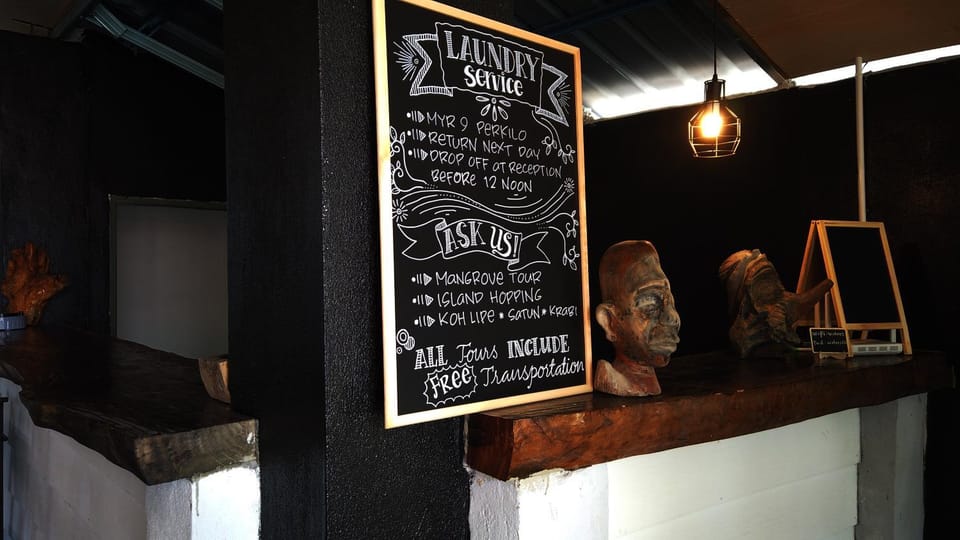 LAUNDRY
SERVICE
MYR 9 PERKILO
RETURN NEXT DAY
DROP OFF AT RECEPTION
BEFORE 12 NOON
ASK US!
MANGROVE TOUR
ISLAND HOPPING
KOH LIPE • SATUN • KRABI
ALL Tours INCLUDE
FREE Transportation